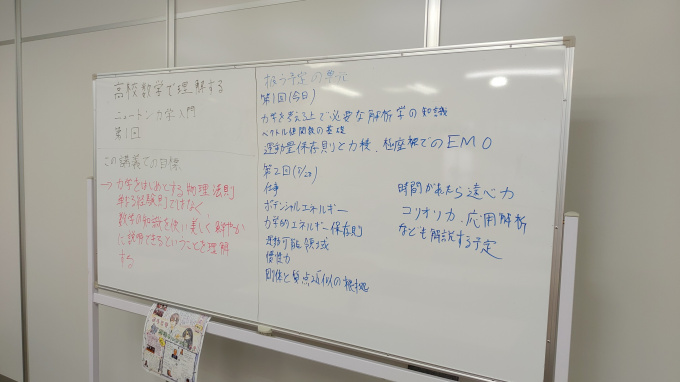 高校数学で理解する
ニュートン力学入門
第1回
この講義での目標
→ 力学をはじめとする物理法則
単なる経験則ではなく、
数学の知識を使い美しく鮮やか
に説明できるということを理解
する
扱う予定の単元
第1回(今日)
力学を考える上で必要な解析学の知識
ベクトル値関数の基礎
運動量保存則と力積、極座標でのEMO
第2回
仕事
ポテンシャルエネルギー
力学的エネルギー保存則
運動可能領域
慣性力
剛体と質点近似の根拠
時間があれたら遠心力
コリオリ力、応用解析
なども解説する予定